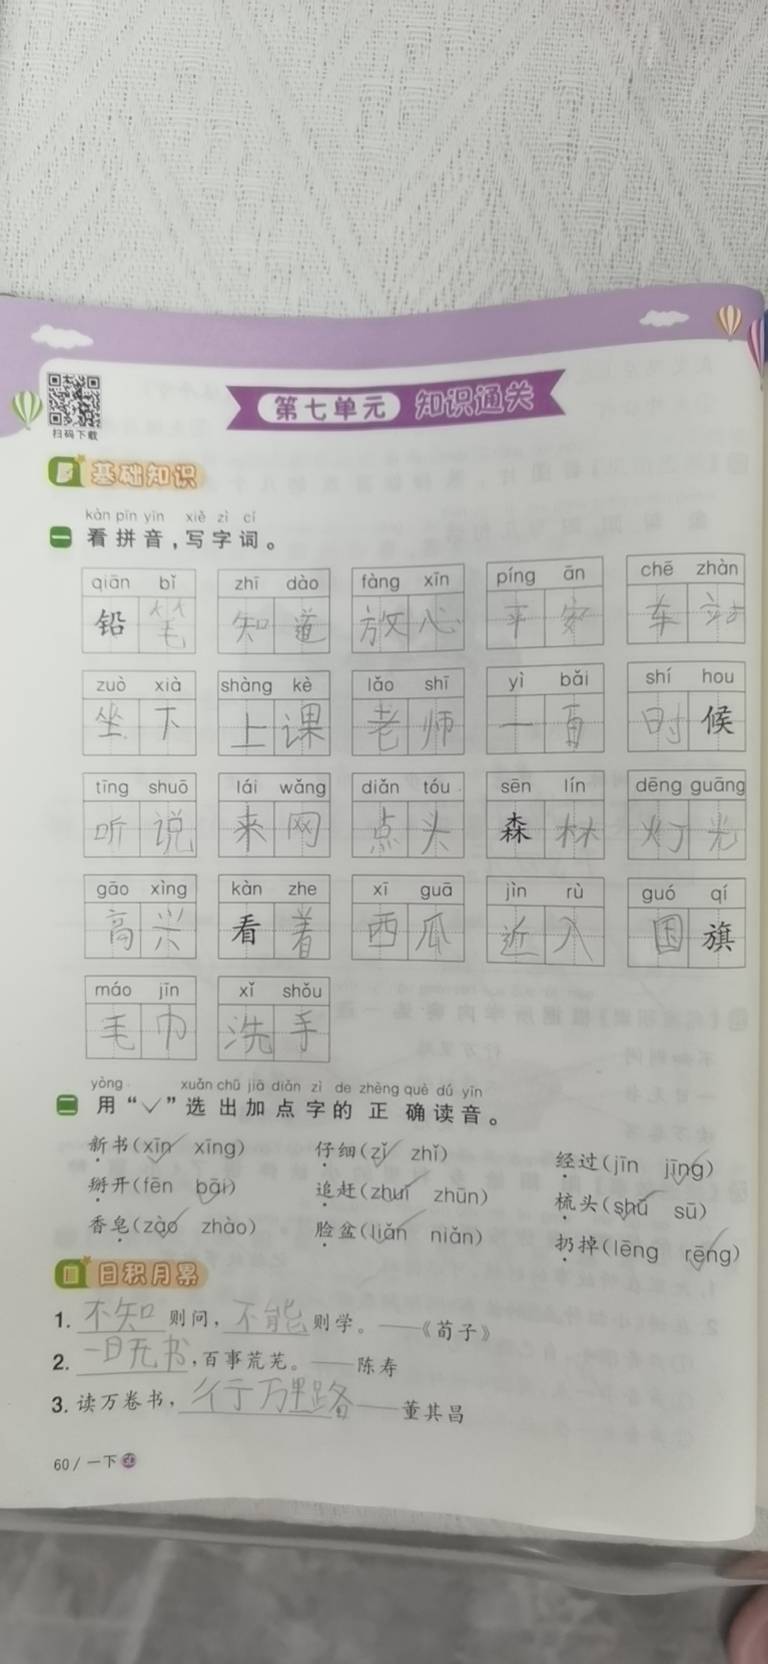 扫码下载
第七单元 知识通关
基础知识
kàn pīn yīn xiě zì cí
一 看拼音，写字词。
qiān bǐ zhī dào fàng xīn píng ān chē zhàn
铅笔 知道 放心 平安 车站
zuò xià shàng kè lǎo shī yì bǎi shí hou
坐下 上课 老师 一百 时候
tīng shuō lái wǎng diǎn tóu sēn lín dēng guāng
听说 来网 点头 森林 灯光
gāo xìng kàn zhe xī guā jìn rù guó qí
高兴 看着 西瓜 近入 国旗
máo jīn xǐ shǒu
毛巾 洗手
yòng xuǎn chū jiā diǎn zì de zhèng què dú yīn
二 用“✓”选出加点字的正确读音。
新书(xīn✓ xīng) 仔细(zǐ✓ zhǐ) 经过(jīn jīng✓)
掰开(fēn bāi✓) 追赶(zhuī✓ zhūn) 梳头(shū✓ sū)
香皂(zào✓ zhào) 脸盆(liǎn✓ niǎn) 扔掉(lēng rēng✓)
日积月累
1. 不知则问，不能则学。——《荀子》
2. 一日无书，百事荒芜。——陈寿
3. 读万卷书，行万里路——董其昌
60 / 一下